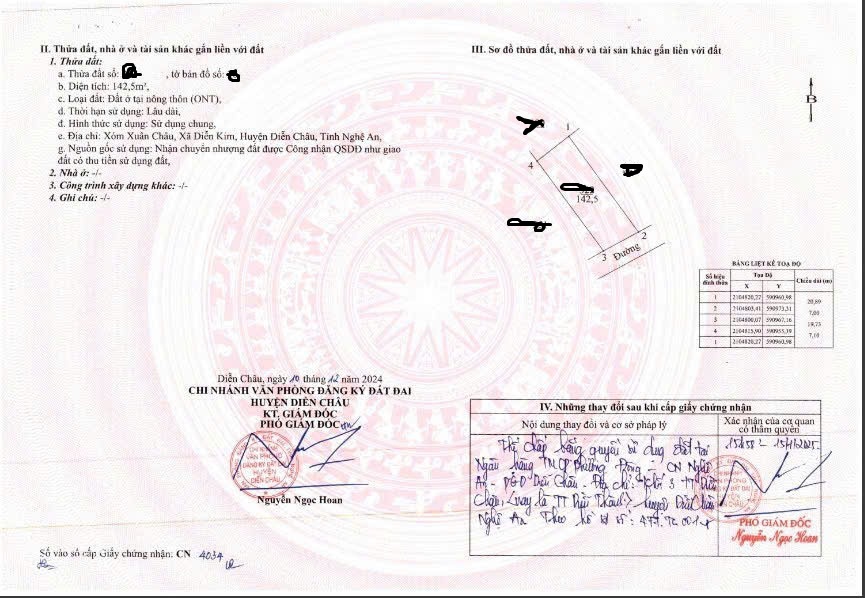 II. Thửa đất, nhà ở và tài sản khác gắn liền với đất
1. Thửa đất:
a. Thửa đất số: , tờ bản đồ số:
b. Diện tích: 142,5m²,
c. Loại đất: Đất ở tại nông thôn (ONT),
d. Thời hạn sử dụng: Lâu dài,
đ. Hình thức sử dụng: Sử dụng chung,
e. Địa chỉ: Xóm Xuân Châu, Xã Diễn Kim, Huyện Diễn Châu, Tỉnh Nghệ An,
g. Nguồn gốc sử dụng: Nhận chuyển nhượng đất được Công nhận QSDĐ như giao
đất có thu tiền sử dụng đất,
2. Nhà ở: -/-
3. Công trình xây dựng khác: -/-
4. Ghi chú: -/-
Diễn Châu, ngày 10 tháng 12 năm 2024
CHI NHÁNH VĂN PHÒNG ĐĂNG KÝ ĐẤT ĐAI
HUYỆN DIỄN CHÂU
KT. GIÁM ĐỐC
PHÓ GIÁM ĐỐC
CHI NHÁNH
VĂN PHÒNG
ĐĂNG KÝ ĐẤT ĐAI
HUYỆN
DIỄN CHÂU
Nguyễn Ngọc Hoan
Số vào sổ cấp Giấy chứng nhận: CN 4034
III. Sơ đồ thửa đất, nhà ở và tài sản khác gắn liền với đất
B
1
4
142,5
2
3
Đường
BẢNG LIỆT KÊ TOẠ ĐỘ
Số hiệu đỉnh thửa Tọa Độ Chiều dài (m)
X Y
1 2104820,27 590960,98
20,89
2 2104803,41 590973,31
7,00
3 2104800,07 590967,16
19,73
4 2104815,90 590955,39
7,10
1 2104820,27 590960,98
IV. Những thay đổi sau khi cấp giấy chứng nhận
Nội dung thay đổi và cơ sở pháp lý
Xác nhận của cơ quan
có thẩm quyền
Thế chấp bằng quyền sử dụng đất tại
Ngân hàng TMCP Phương Đông - CN Nghệ
An - PGD Diễn Châu - Địa chỉ: Khối 3 - TT Diễn
Châu (nay là TT Diễn Thành) - huyện Diễn Châu
Nghệ An Theo hồ sơ số:
PHÓ GIÁM ĐỐC
Nguyễn Ngọc Hoan